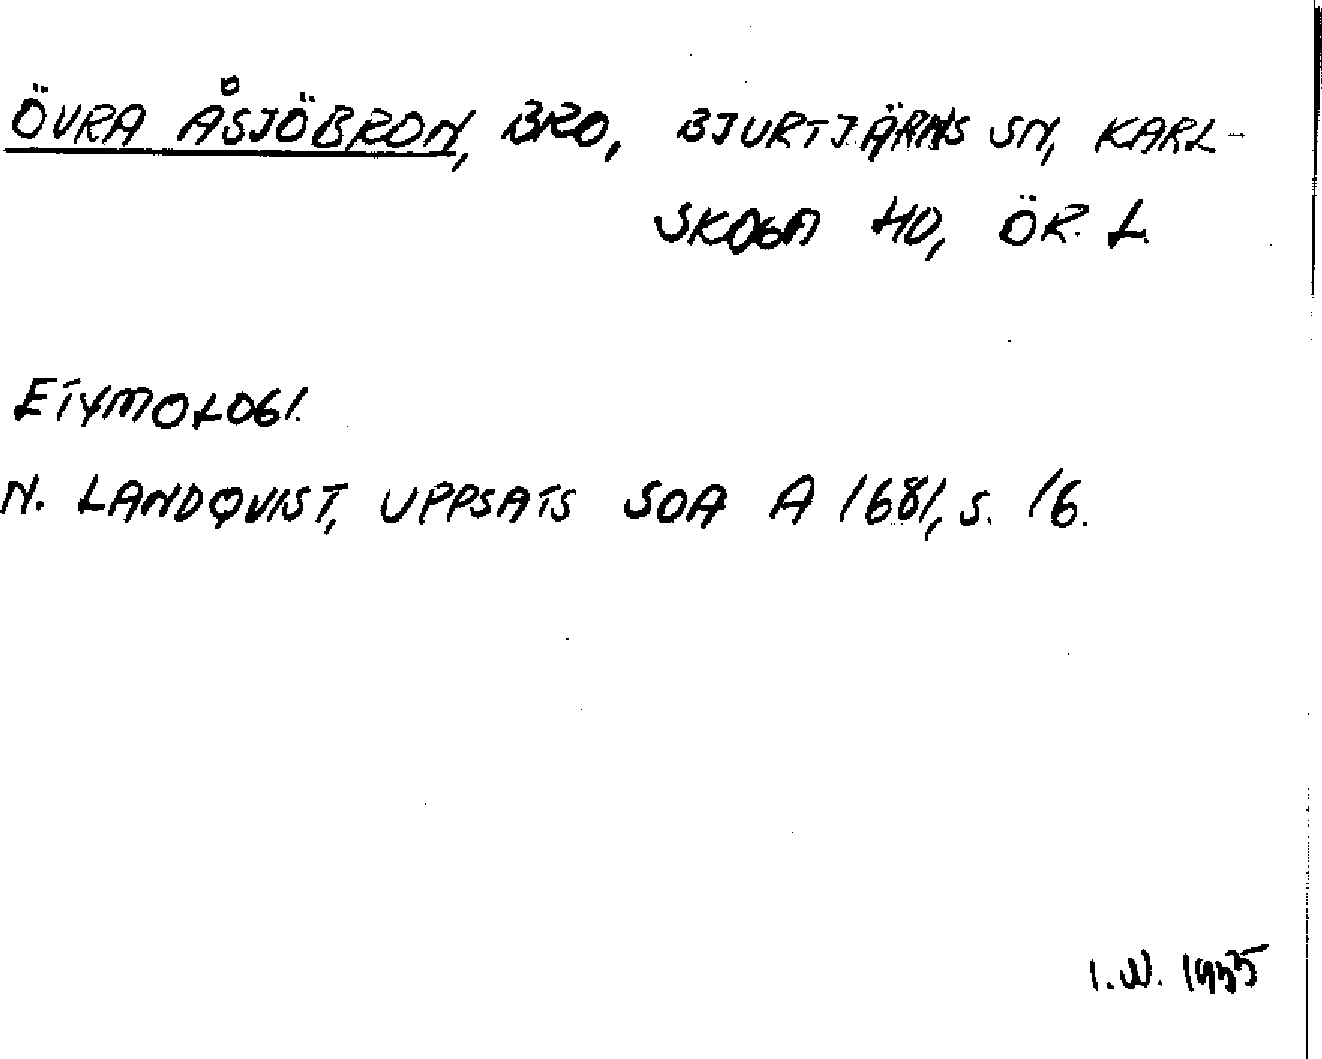 ÖVRA ÅSJÖBRON, BRO, BJURTJÄRNS SN, KARL-
SKOGA HD, ÖR. L.
ETYMOLOGI.
N. LANDQVIST, UPPSATS SOA A 1681, S. 16.
I.W. 1955